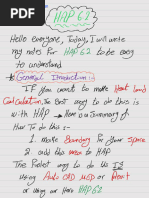 HAP 62
Hello everyone, Today, I will write
my notes for HAP 62 to be easy
to understand
General Introduction :-
IF you want to make Heat load
Calculation, The Best way to do this is
with HAP → Here is a Summary of
How To do this :-
1. Make Boundary for your Space
2. add this into HAP
The Fastest way to do US IS
Using Auto CAD MEP or Revit
or using our Hero HAP 62